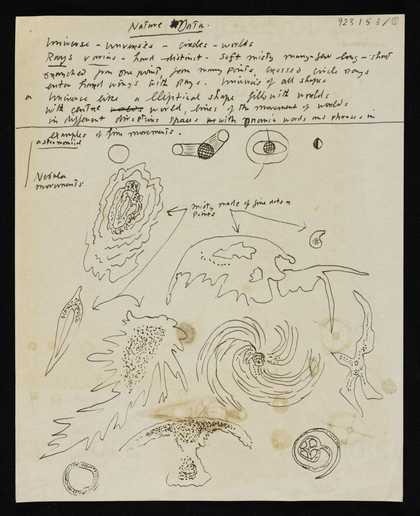 Nature Data.
923.1.5.3/①
Universe - Universes - circles - worlds
Rays various - hard distinct. Soft misty many-few long-short
from one point, from many points, crossed circle rays
wings with Rays. Universes of all shapes
Universe like a Elliptical shape filled with worlds
with centre world, lines of the movement of worlds
in different directions space as with words and phrases in
examples of form movements.
astronomical
Nebula
movements
misty made of fine dots &